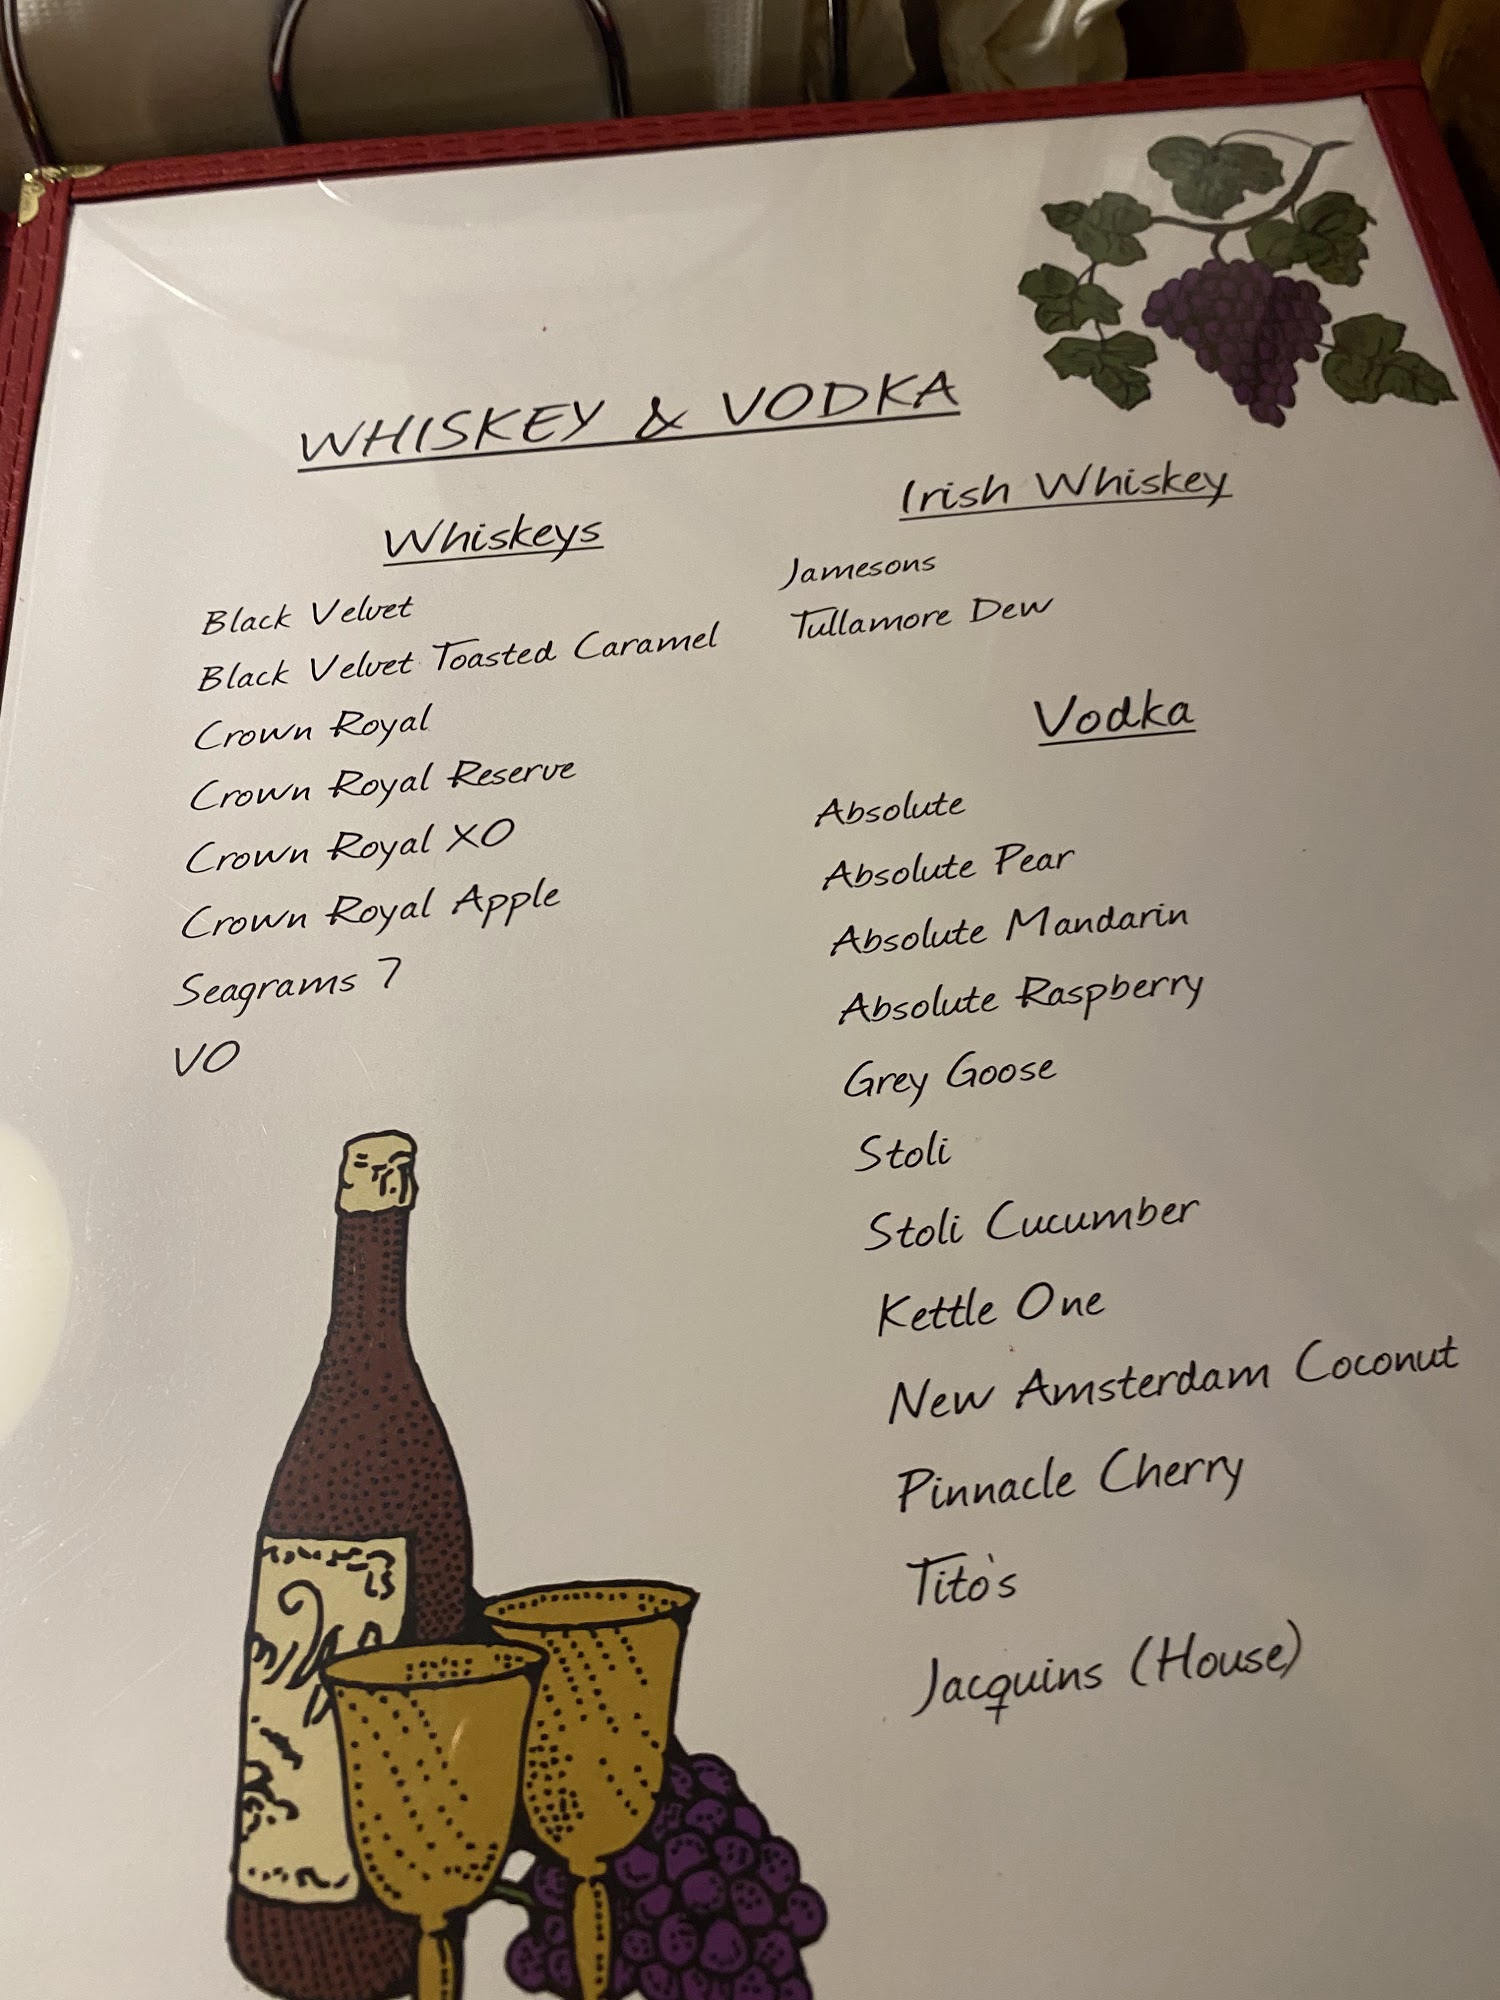 WHISKEY & VODKA
Whiskeys
Black Velvet
Black Velvet Toasted Caramel
Crown Royal
Crown Royal Reserve
Crown Royal XO
Crown Royal Apple
Seagrams 7
VO
Irish Whiskey
Jamesons
Tullamore Dew
Vodka
Absolute
Absolute Pear
Absolute Mandarin
Absolute Raspberry
Grey Goose
Stoli
Stoli Cucumber
Kettle One
New Amsterdam Coconut
Pinnacle Cherry
Tito's
Jacquins (House)